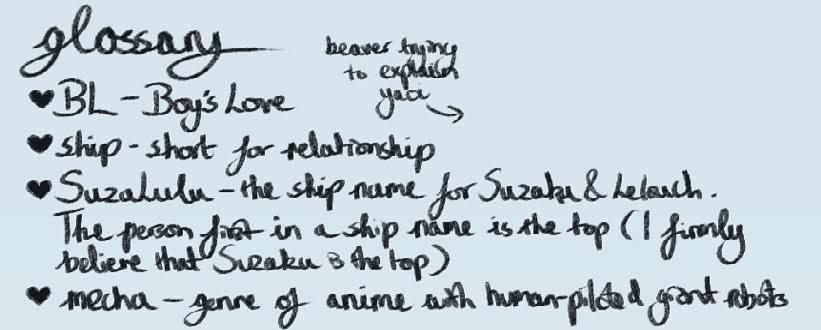 glossary
beaver trying
to explain
yaoi
♥ BL - Boy's Love
♥ ship - short for relationship
♥ Suzalulu - the ship name for Suzaku & Lelouch.
The person first in a ship name is the top (I firmly
believe that Suzaku is the top)
♥ mecha - genre of anime with human-piloted giant robots